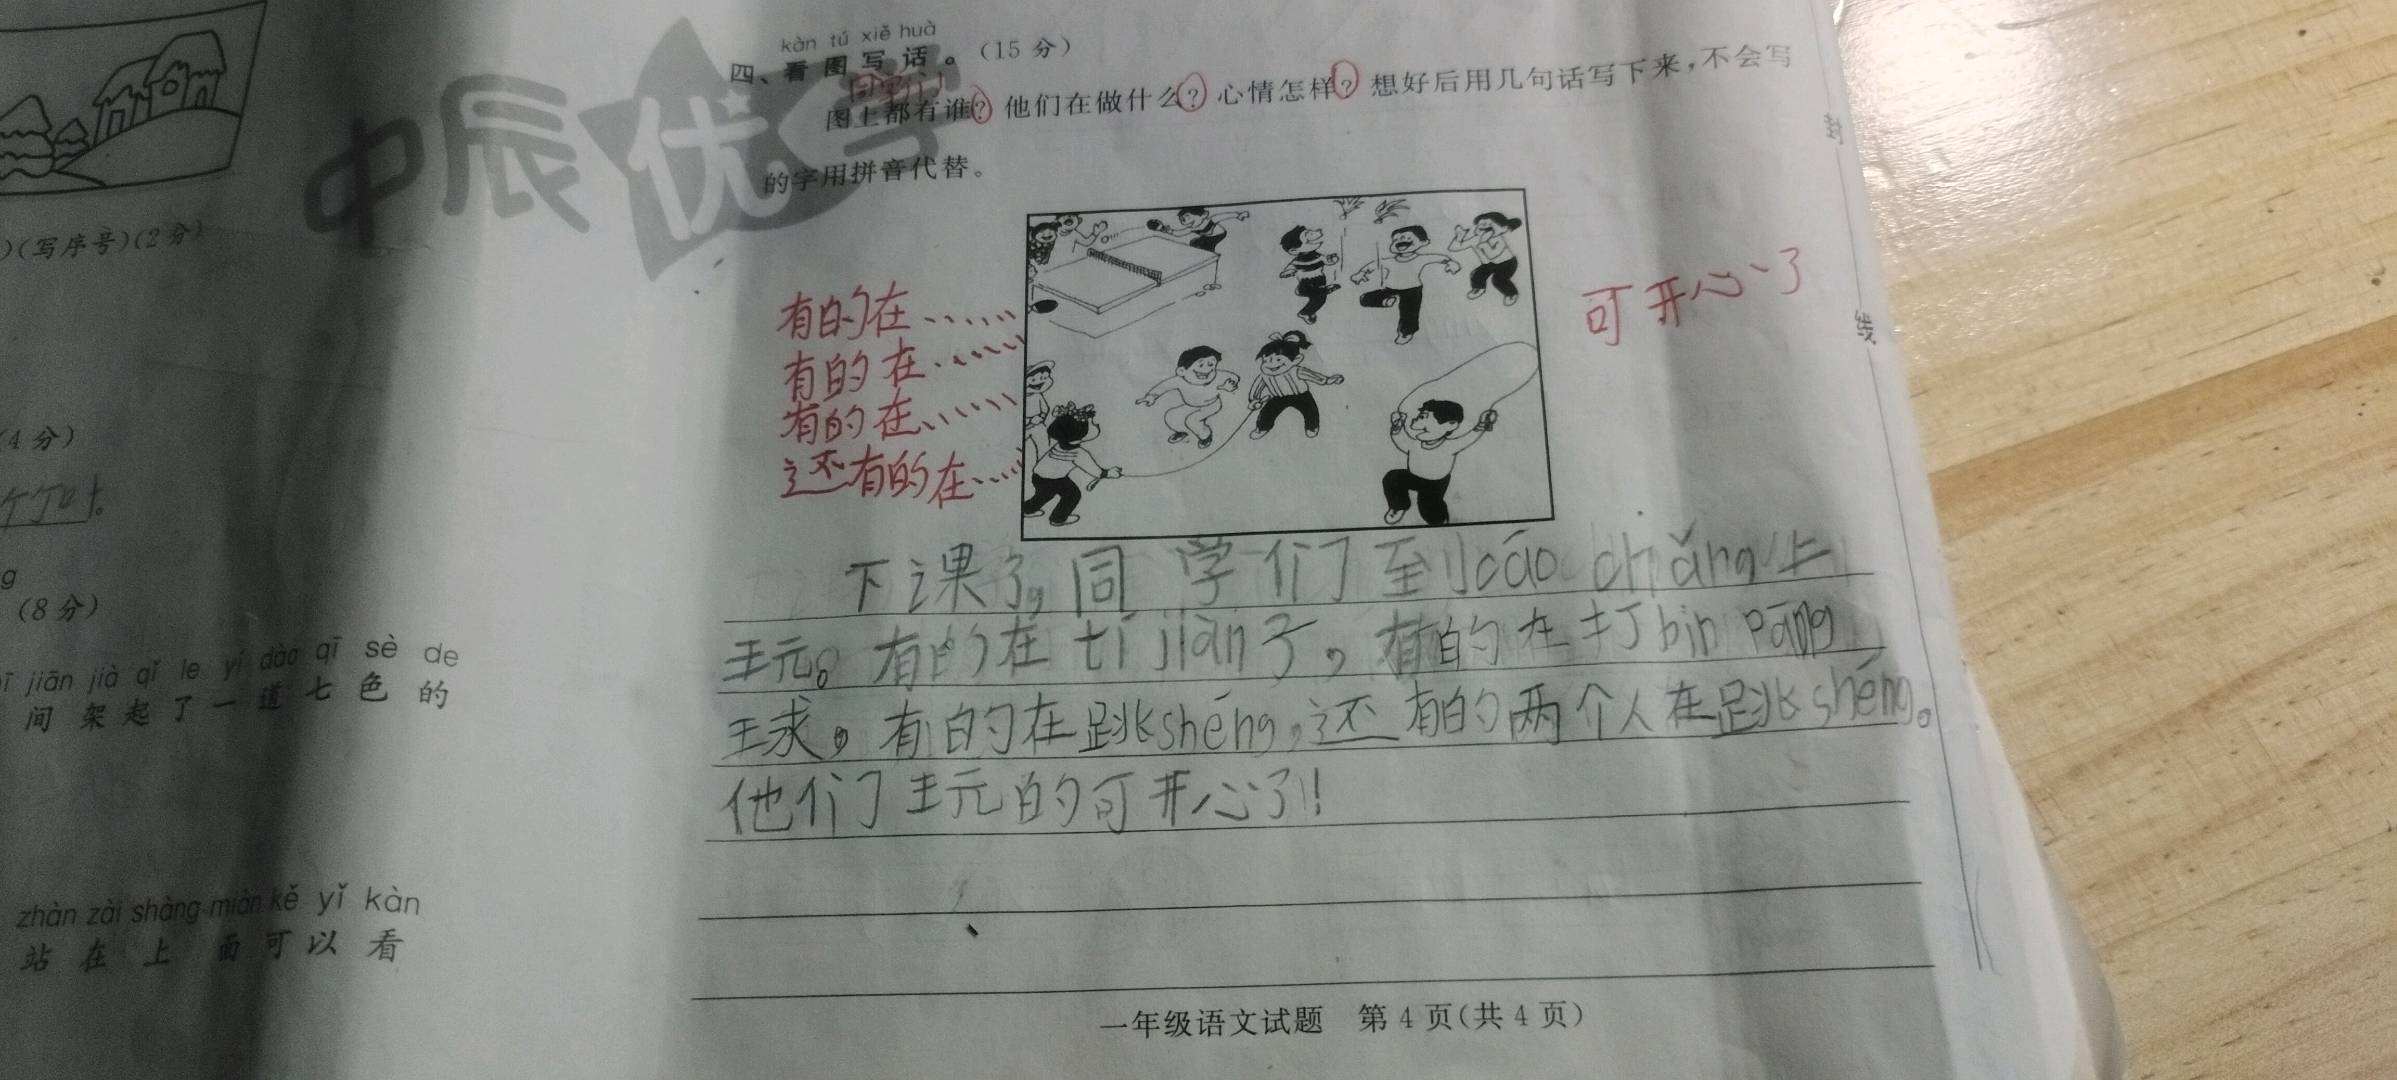 )(写序号)(2分)
(4分)
g
(8分)
jiān jià qǐ le yí dào qī sè de
间架起了一道七色的
zhàn zài shàng miàn kě yǐ kàn
站在上面可以看
中辰优学
kàn tú xiě huà
四、看图写话。(15分)
同学们
图上都有谁?他们在做什么?心情怎样?想好后用几句话写下来,不会写
的字用拼音代替。
有的在……
有的在……
有的在……
还有的在……
可开心了
下课了,同学们到cāo chǎng上
玩。有的在tī jiàn子,有的在打bin pāng
球,有的在跳shéng,还有的两个人在跳shéng。
他们玩的可开心了!
一年级语文试题 第4页(共4页)
封
线